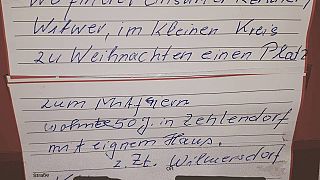 Wo findet einsamer Rentner,
Witwer, im kleinen Kreis
zu Weihnachten einen Platz
zum Mitfeiern
wohnte 50 J. in Zehlendorf
mit eignem Haus.
z. Zt. Wilmersdorf
Straße